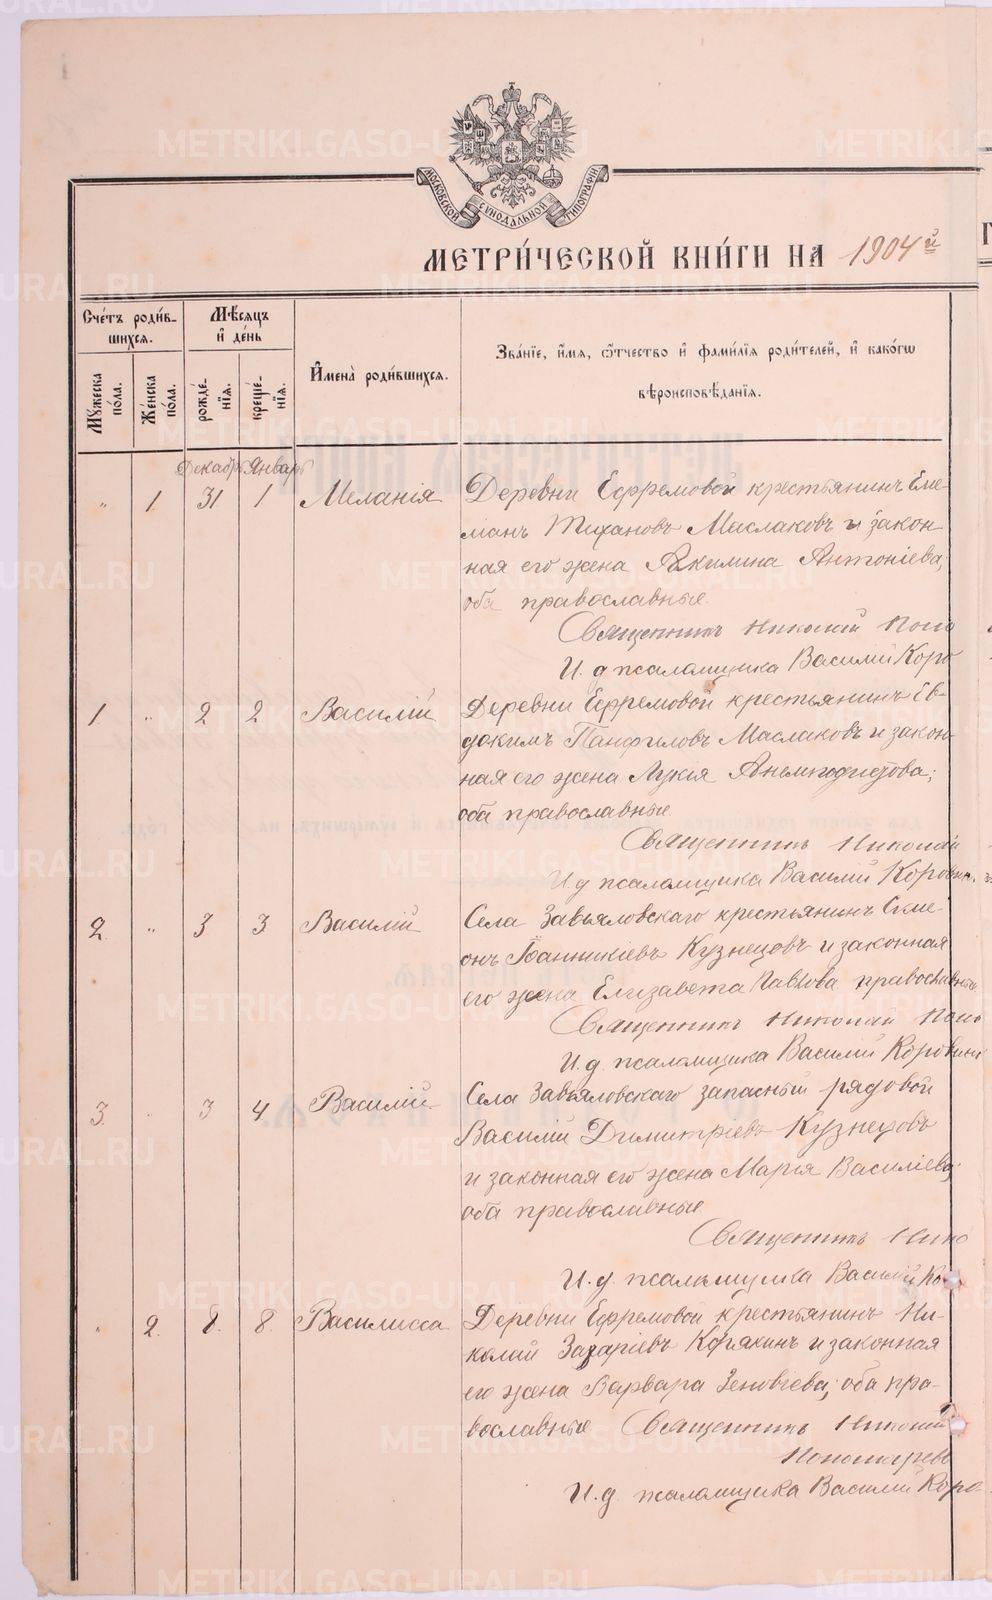 МОСКОВСКОЙ СѴНОДАЛЬНОЙ ТИПОГРАФІИ
МЕТРИ́ЧЕСКОЙ КНИ́ГИ НА 1904 й
Сче́тъ роди́в-
шихся.
Мѣ́сяцъ
и҆ де́нь
И҆мена̀ роди́вшихся.
Зва́нїе, и҆́мя, ѻ҆́тчество и҆ фами́лїя роди́телей, и҆ како́гѡ
вѣроисповѣ́данїя.
Мꙋ́жеска по́ла.
Же́нска по́ла.
рожде́-нїя.
креще́-нїя.
Декабрь Январь
" 1 31 1 Меланія Деревни Ефремовой крестьянинъ Еме-
ліанъ Тихановъ Маслаковъ и закон-
ная его жена Акилина Антоніева,
оба православные.
Священникъ Николай Поно
И. д псаломщика Василий Коро
1 " 2 2 Василій Деревни Ефремовой крестьянинъ Ев-
докимъ Панфиловъ Маслаковъ и закон-
ная его жена Лукія Анемподистова;
оба православные
Священникъ Николай
И. д псаломщика Василій Коровин
2. " 3 3 Василій Села Завьяловскаго крестьянинъ Симе-
онъ Іоанникіевъ Кузнецовъ и законная
его жена Елизавета Павлова православные
Священникъ Николай Поно
И. д. псаломщика Василій Коровинъ
3. " 3 4 Василій Села Завьяловскаго запасный рядовой
Василій Димитріевъ Кузнецовъ
и законная его жена Марія Василіева;
оба православные
Священникъ Нико
И. д. псаломщика Василій Ко
" 2. 8. 8. Василисса Деревни Ефремовой крестьянинъ Ни-
колай Захаріевъ Корякинъ и законная
его жена Варвара Зеновіева; оба пра-
вославные Священникъ Николай
Пономарево
И. д. псаломщика Василій Коро
METRIKI.GASO-URAL.RU